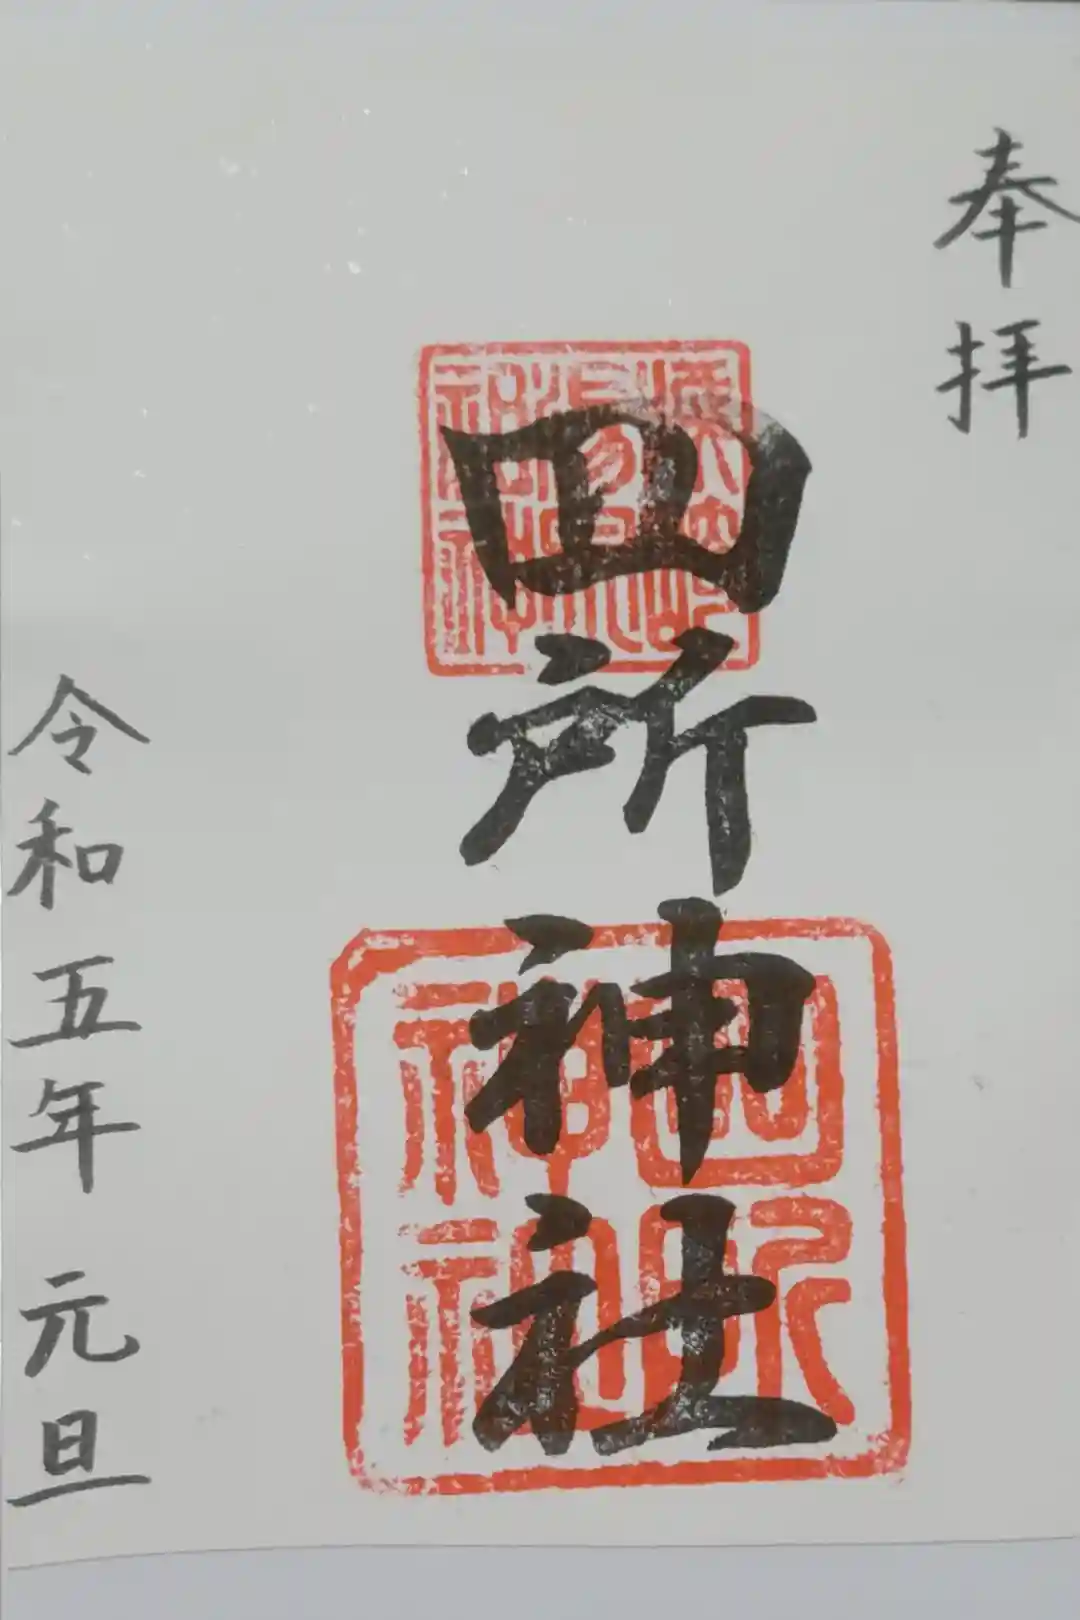 奉拝
四所神社
四所神社
令和五年 元旦